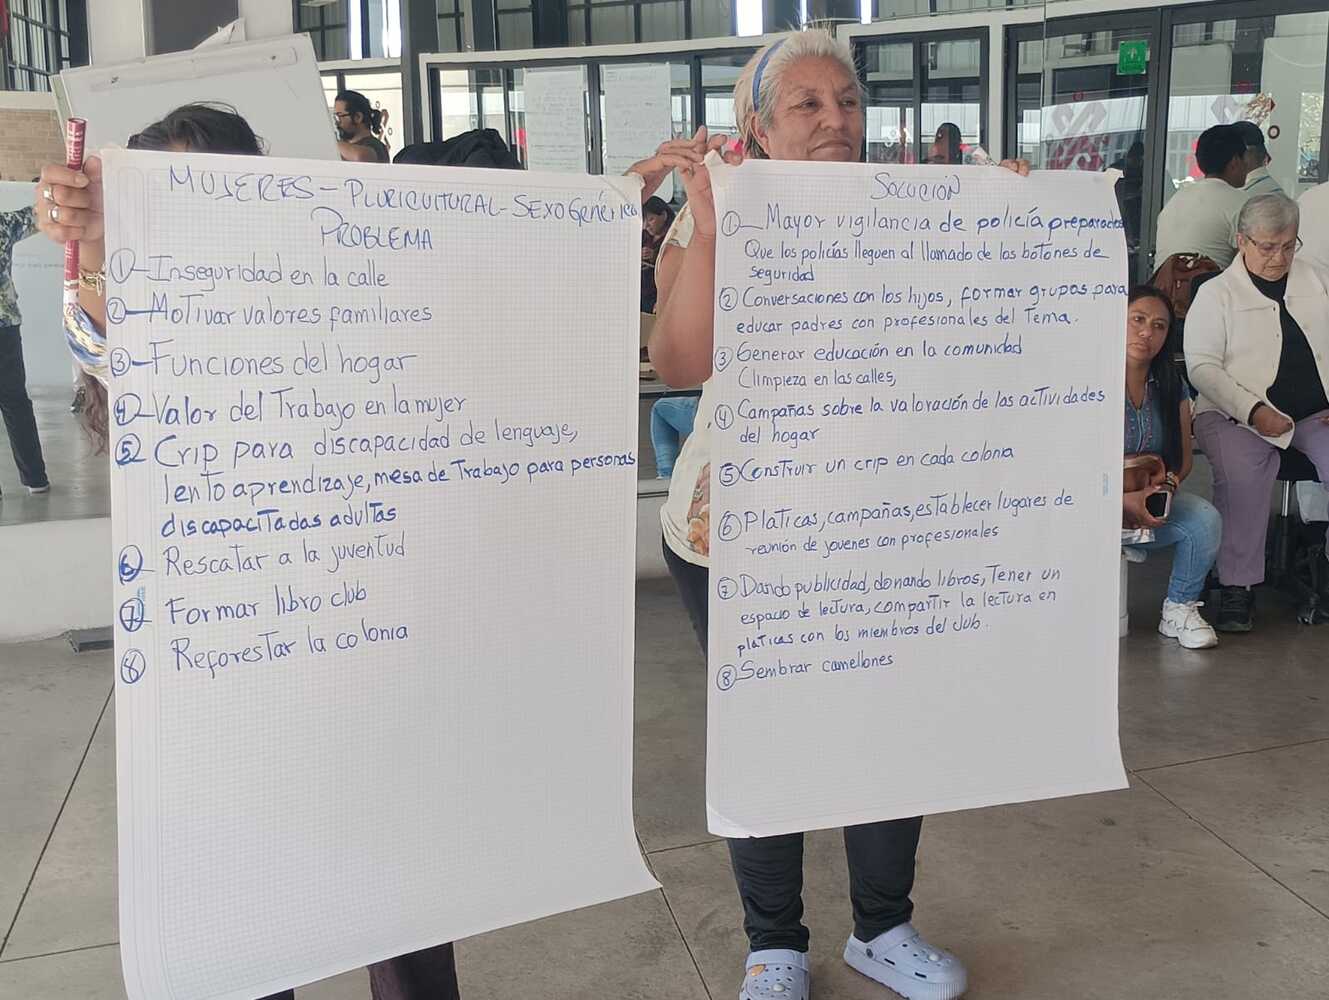 MUJERES - PLURICULTURAL - SEXOGenérico
PROBLEMA
① Inseguridad en la calle
② Motivar valores familiares
③ Funciones del hogar
④ Valor del Trabajo en la mujer
⑤ Crip para discapacidad de lenguaje,
lento aprendizaje, mesa de Trabajo para personas
discapacitadas adultas
⑥ Rescatar a la juventud
⑦ Formar libro club
⑧ Reforestar la colonia
SOLUCIÓN
① Mayor vigilancia de policía preparados
Que los policías lleguen al llamado de los botones de
seguridad
② Conversaciones con los hijos, formar grupos para
educar padres con profesionales del Tema.
③ Generar educación en la comunidad
Climpieza en las calles,
④ Campañas sobre la valoración de las actividades
del hogar
⑤ Construir un crip en cada colonia
⑥ Platicas, campañas, establecer lugares de
reunión de jovenes con profesionales
⑦ Dando publicidad, donando libros, Tener un
espacio de lectura, compartir la lectura en
platicas con los miembros del club.
⑧ Sembrar camellones